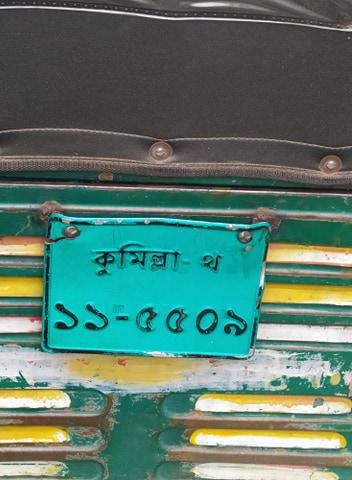 কুমিল্লা - থ
১১-৫৫০৯